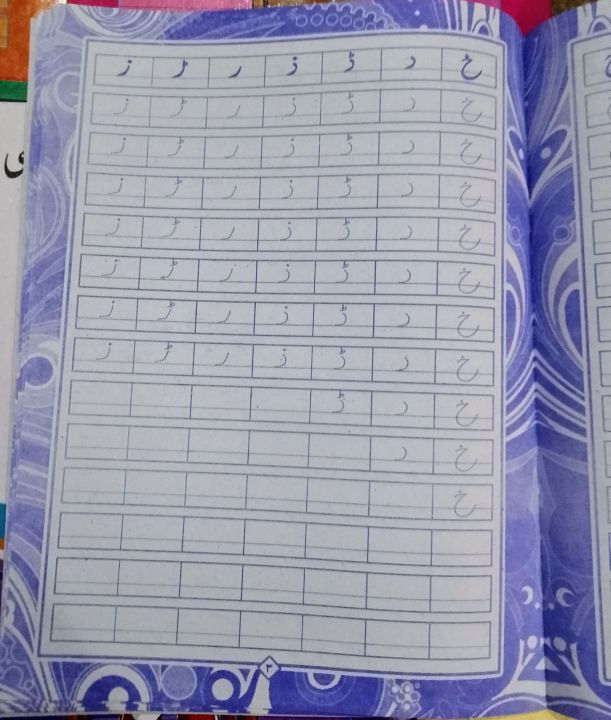 خ د ڈ ذ ر ڑ ز
خ د ڈ ذ ر ڑ ز
خ د ڈ ذ ر ڑ ز
خ د ڈ ذ ر ڑ ز
خ د ڈ ذ ر ڑ ز
خ د ڈ ذ ر ڑ ز
خ د ڈ ذ ر ڑ ز
خ د ڈ ذ ر ڑ ز
خ د ڈ
خ د
خ
۳